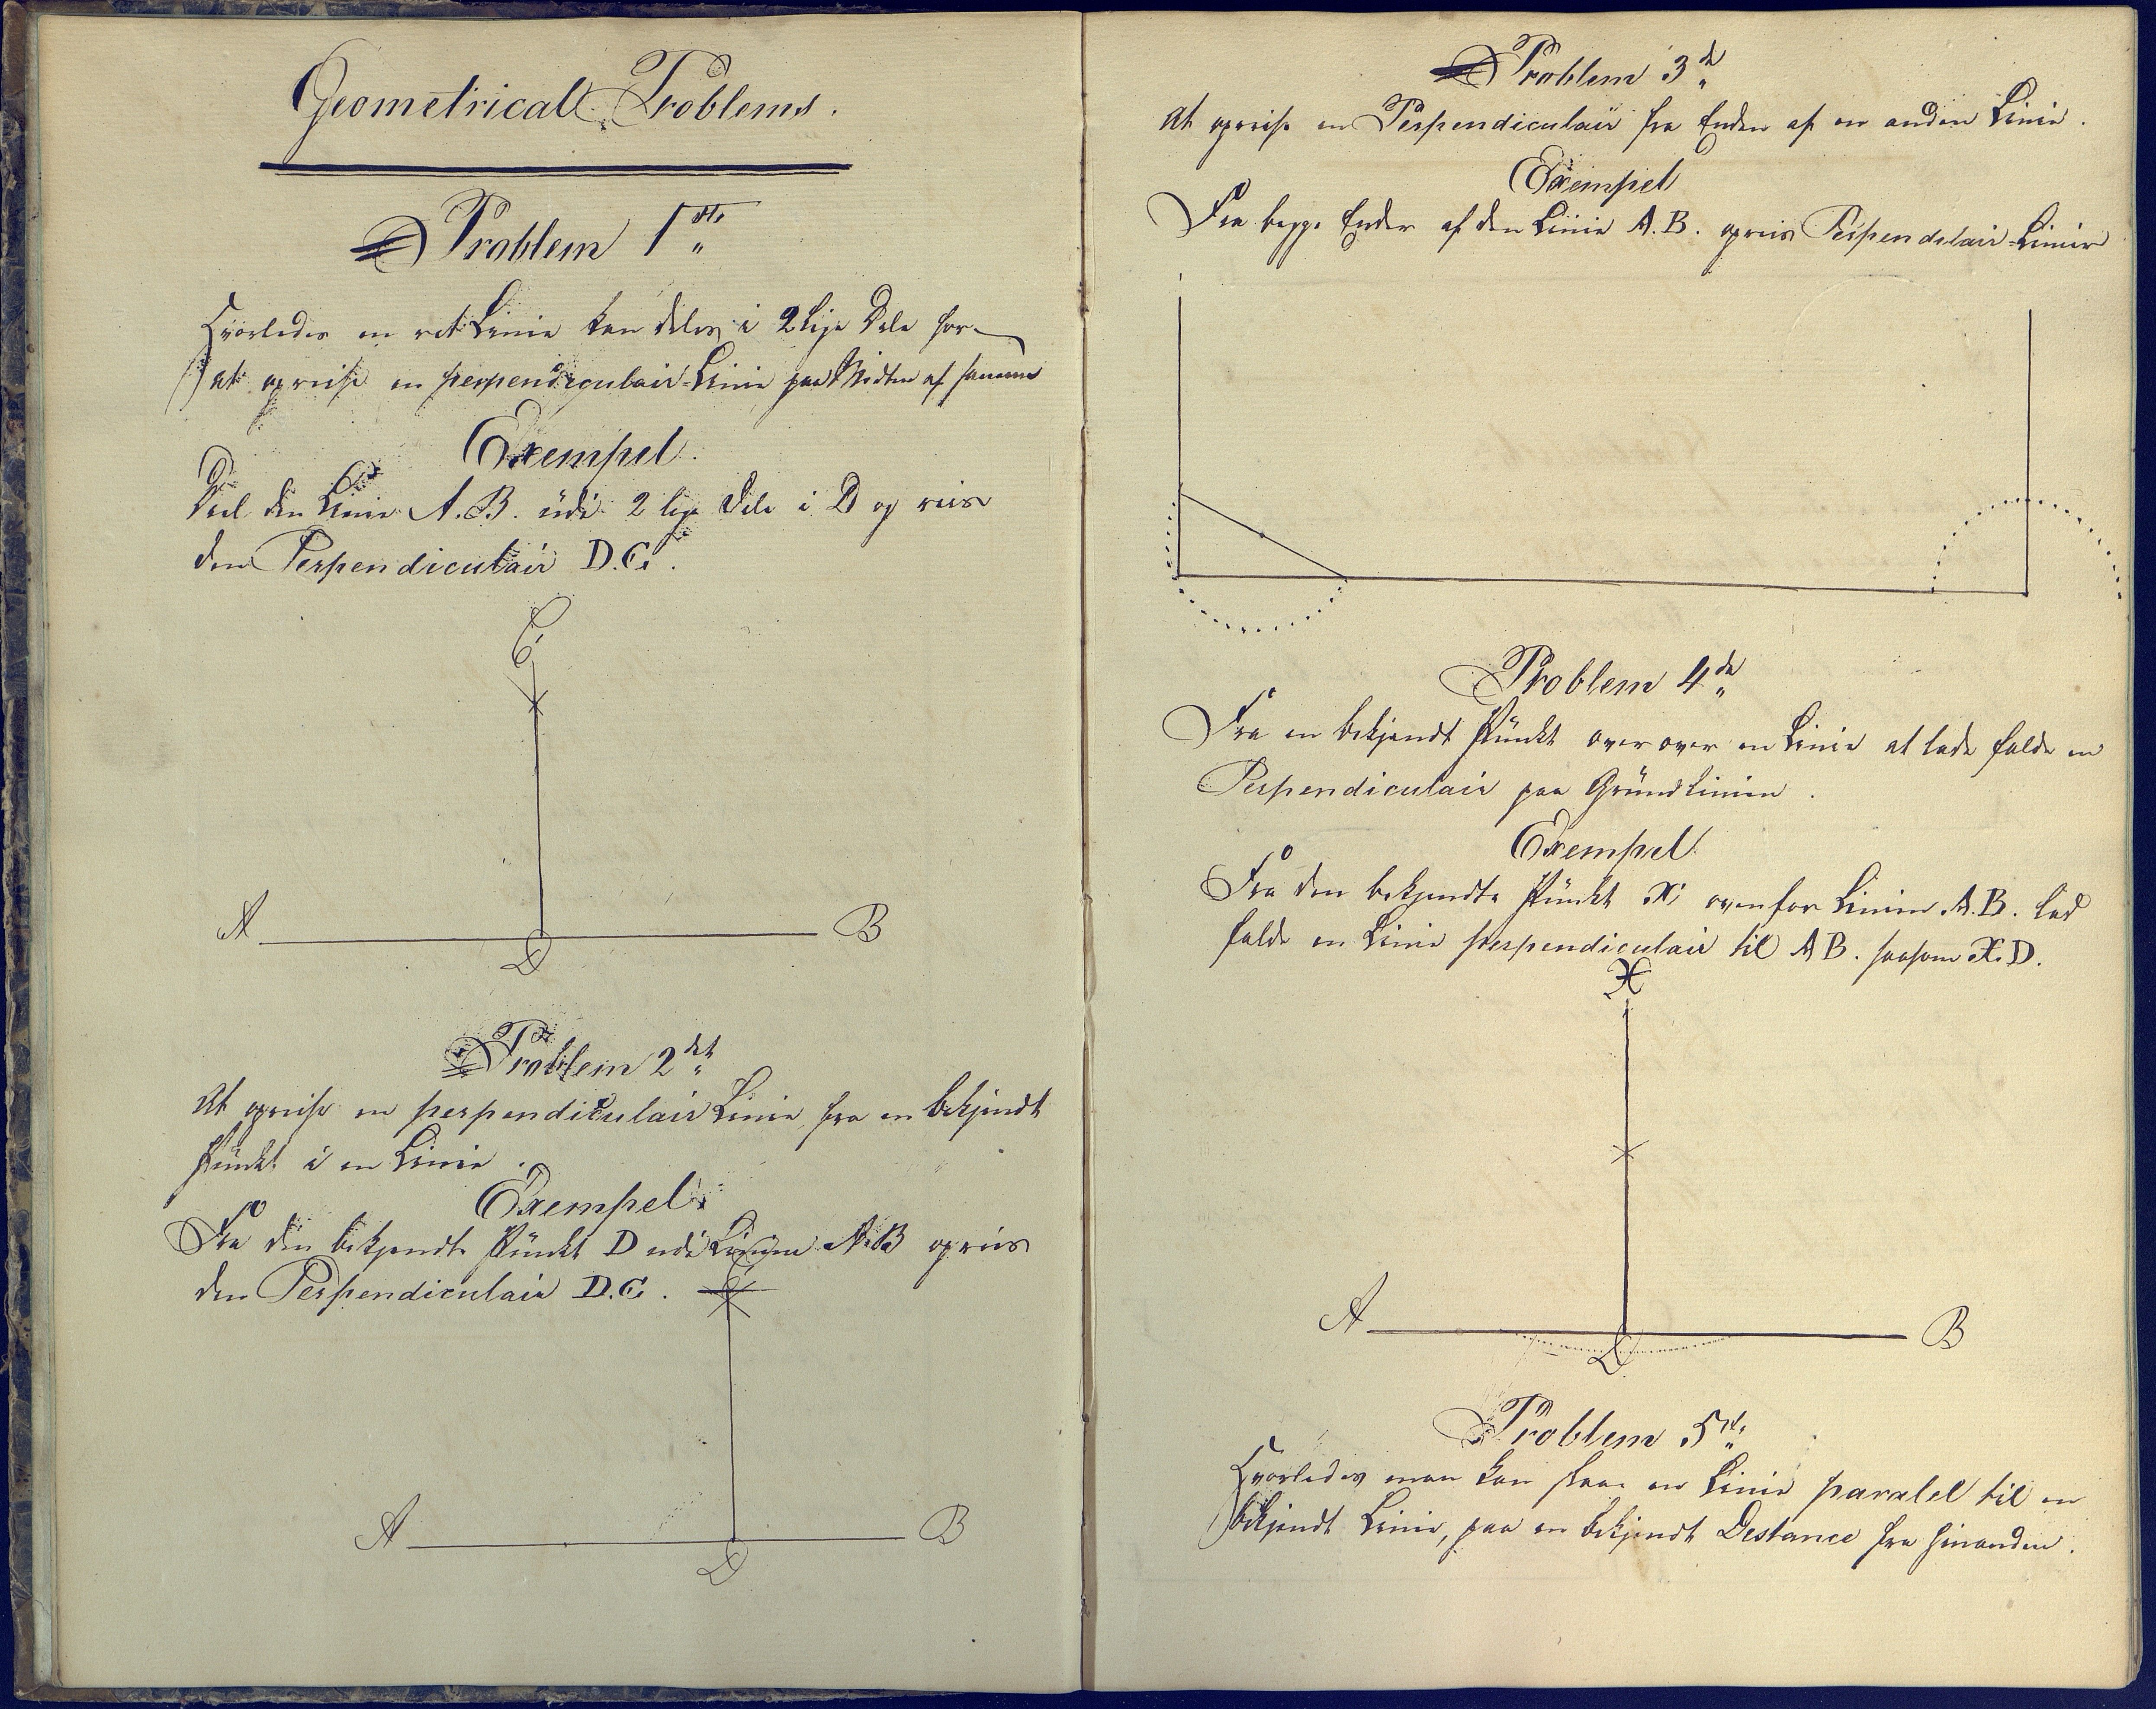 Geometrical Problems.
Problem 1ste
Hvorledes en ret Linie kan deles i 2 lige Dele for
at opreise en perpendiculair-Linie paa Midten af samme
Exempel.
Deel den Linie A.B. udi 2 lige Dele i D og reis
den Perpendiculair D.C.
C
A
B
D
Problem 2det
At opreise en perpendiculair Linie fra en bekjendt
Punkt i en Linie.
Exempel.
Fra den bekjendte Punkt D udi Linien A.B opreis
den Perpendiculair D.C.
C
A
B
D
Problem 3de
At opreise en Perpendiculair fra Enden af en anden Linie.
Exempel
Fra begge Ender af den Linie A.B. opreis Perpendulair-Linier
Problem 4de
Fra en bekjendt Punkt over over en Linie at lade falde en
Perpendiculair paa Grundlinien.
Exempel
Fra den bekjendte Punkt X ovenfor Linien A.B. lad
falde en Linie perpendiculair til AB. saasom X.D.
X
A
B
D
Problem 5te
Hvorledes man kan faae en Linie paralel til en
bekjendt Linie, paa en bekjendt Distance fra hinanden.